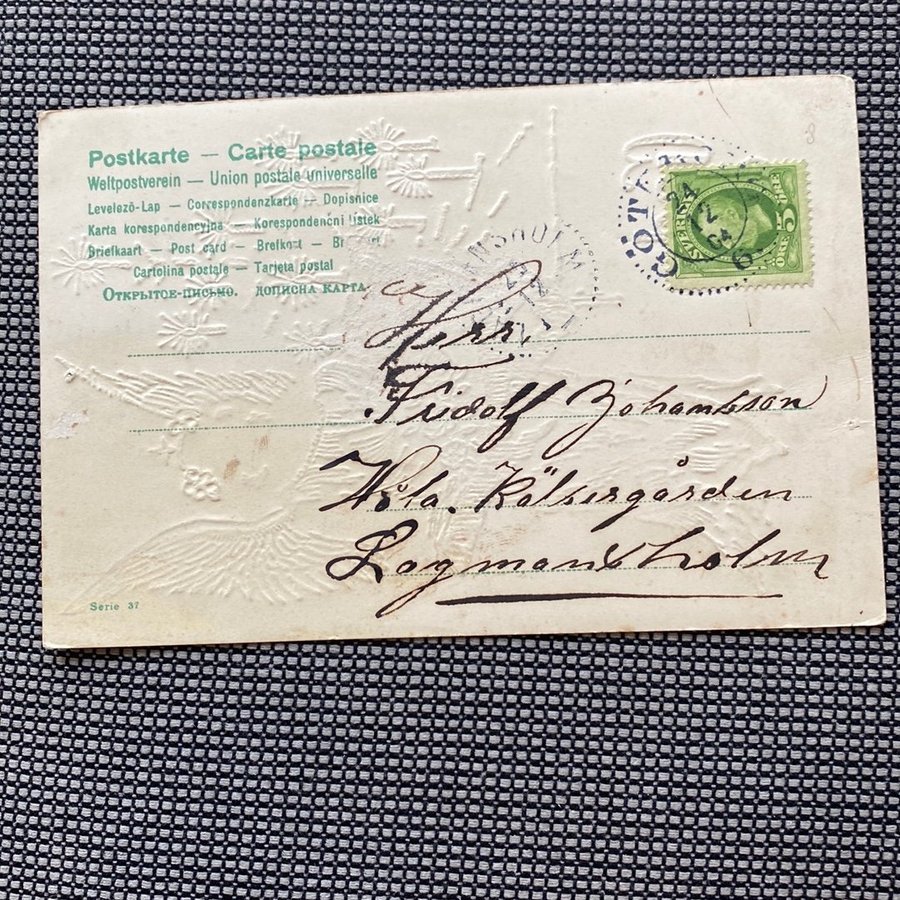 Postkarte — Carte postale
Weltpostverein — Union postale universelle
Levelező-Lap — Correspondenzkarte — Dopisnice
Karta korespondencyjna — Korespondenční lístek
Briefkaart — Post card — Brefkort —
Cartolina postale — Tarjeta postal
Открытое-письмо. дописна карта
24
12
04
6
SVERIGE
5
ÖRE
12
Herr.
Fridolf Johansson
Källsergården
Lagmansholm
Serie 37